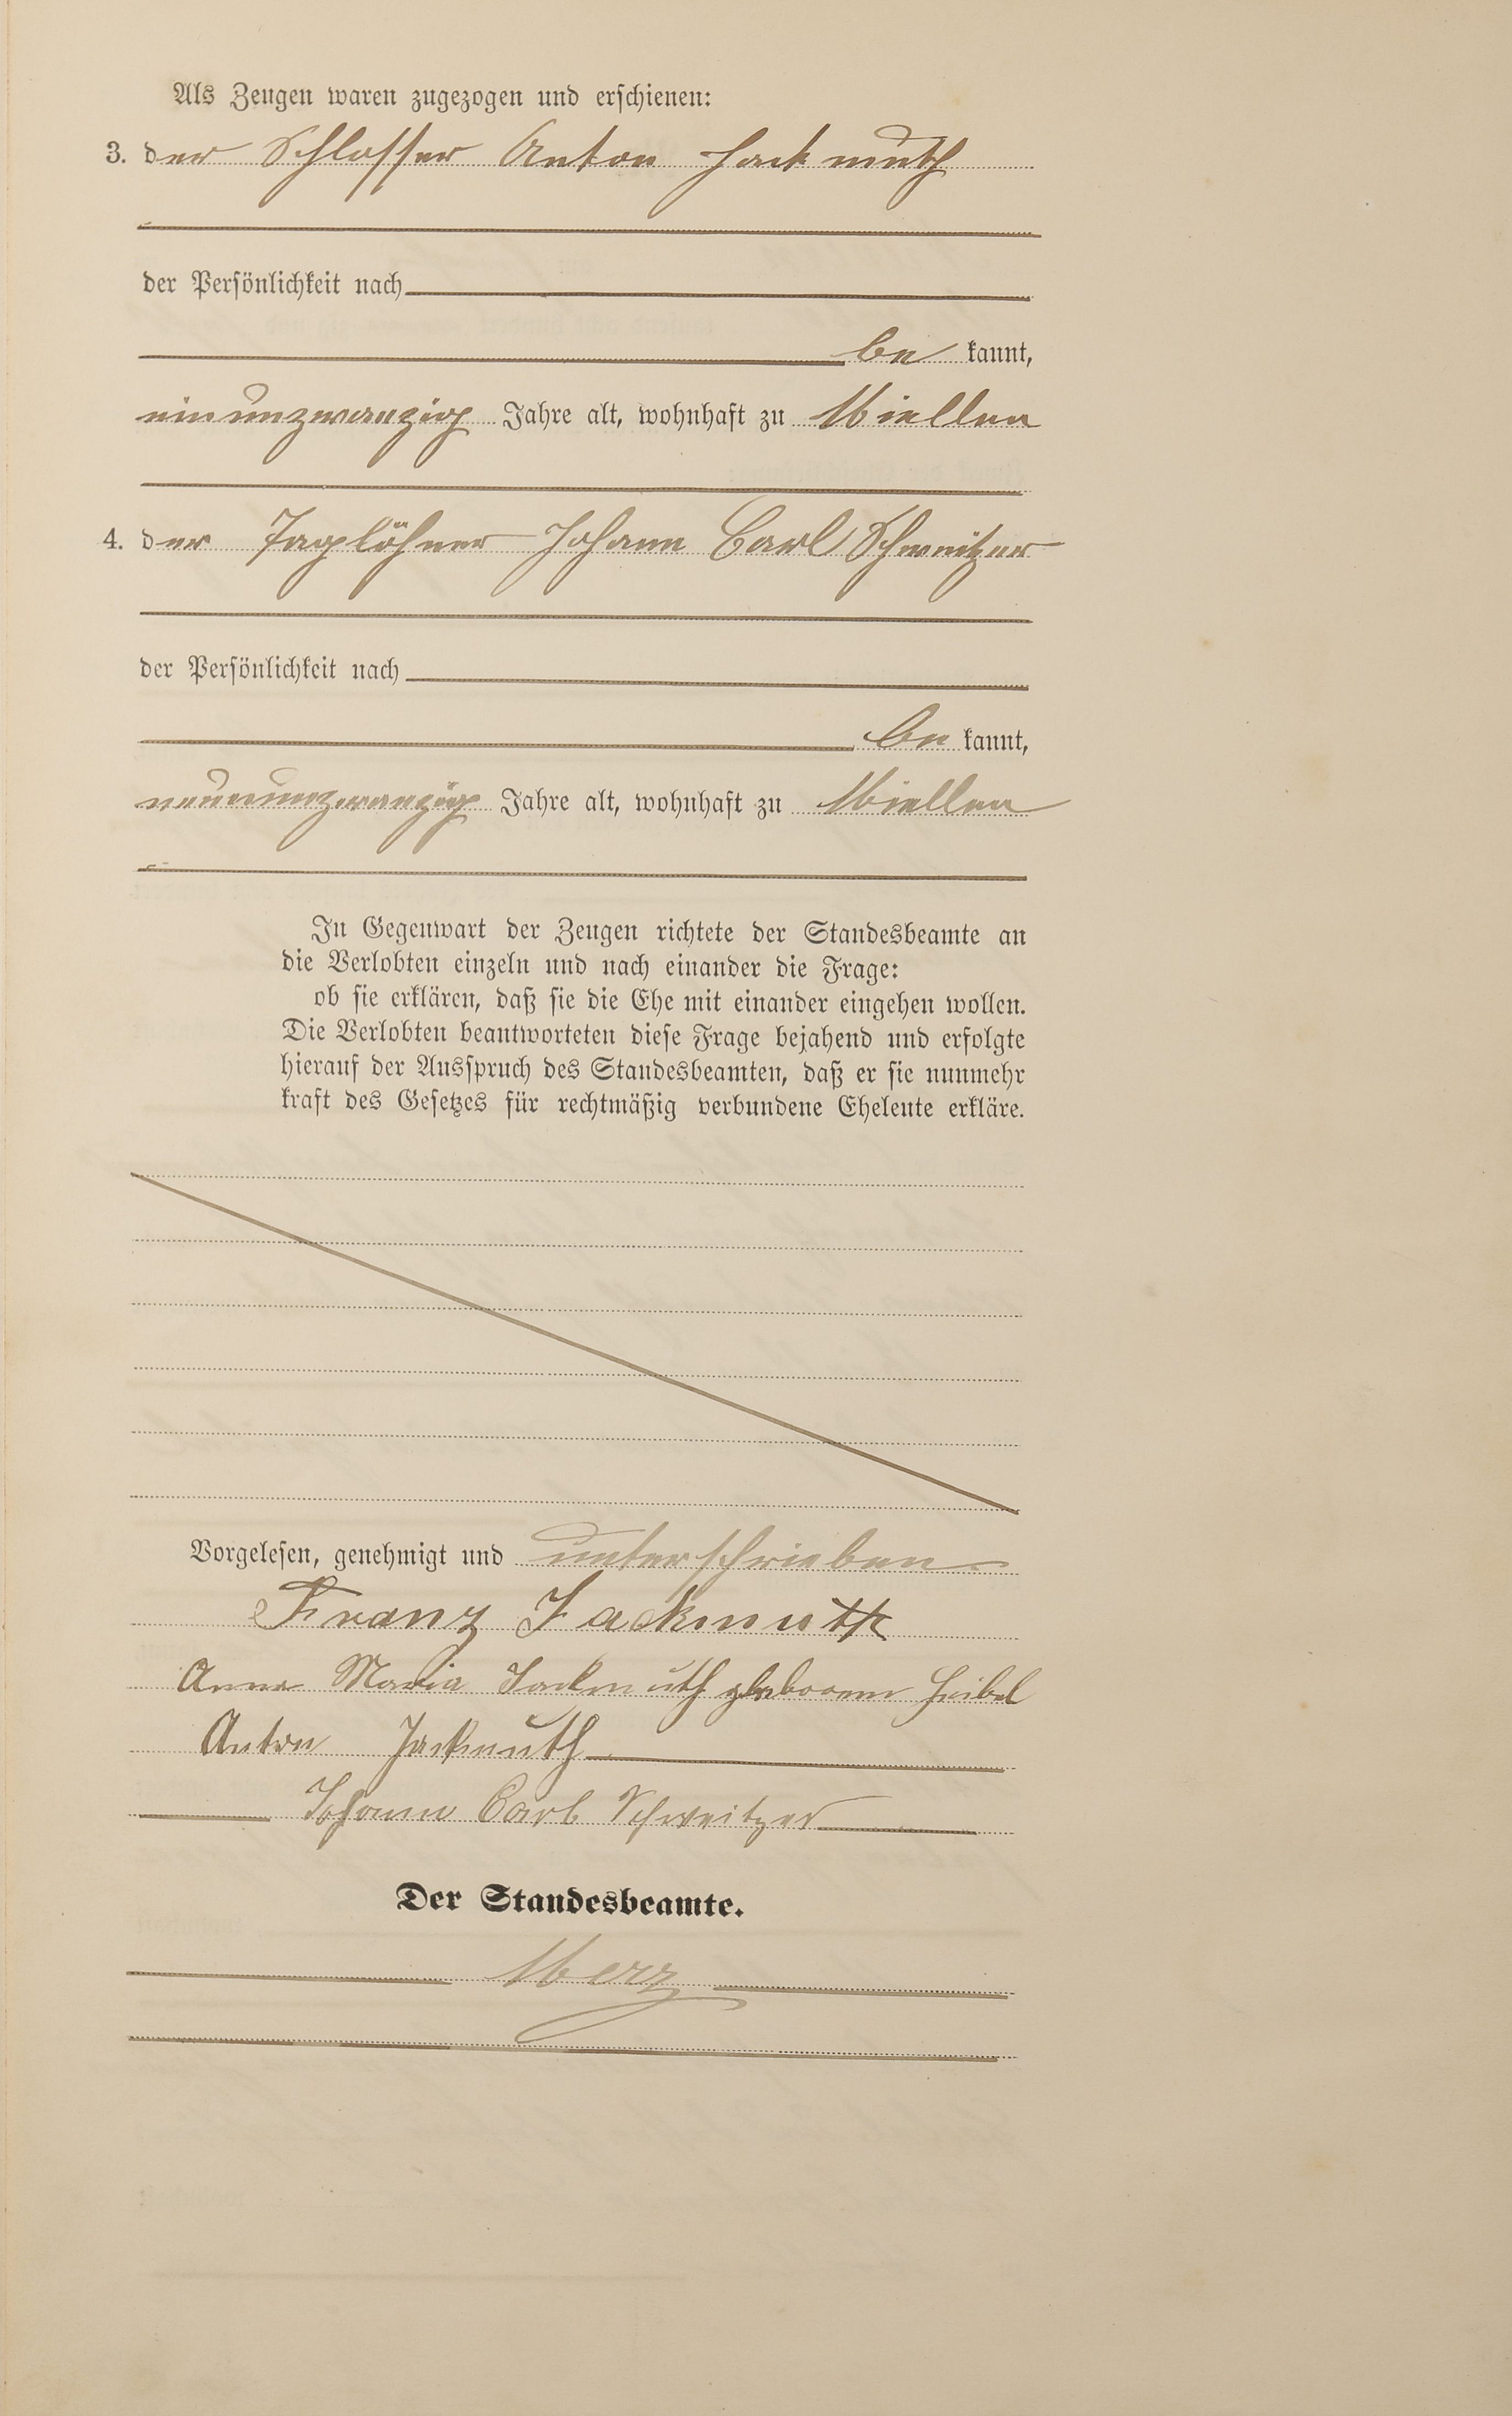 Als Zeugen waren zugezogen und erschienen:
3. der Schlosser Anton Jackmuth
der Persönlichkeit nach
be kannt,
einunzwanzig Jahre alt, wohnhaft zu Miellen
4. der Taglöhner Johann Carl Schweitzer
der Persönlichkeit nach
be kannt,
neununzwanzig Jahre alt, wohnhaft zu Miellen
In Gegenwart der Zeugen richtete der Standesbeamte an
die Verlobten einzeln und nach einander die Frage:
ob sie erklären, daß sie die Ehe mit einander eingehen wollen.
Die Verlobten beantworteten diese Frage bejahend und erfolgte
hierauf der Ausspruch des Standesbeamten, daß er sie nunmehr
kraft des Gesetzes für rechtmäßig verbundene Eheleute erkläre.
Vorgelesen, genehmigt und unterschrieben
Franz Jackmuth
Anna Maria Jackmuth
Anton Jackmuth
Johann Carl Schweitzer
Der Standesbeamte.
Merz